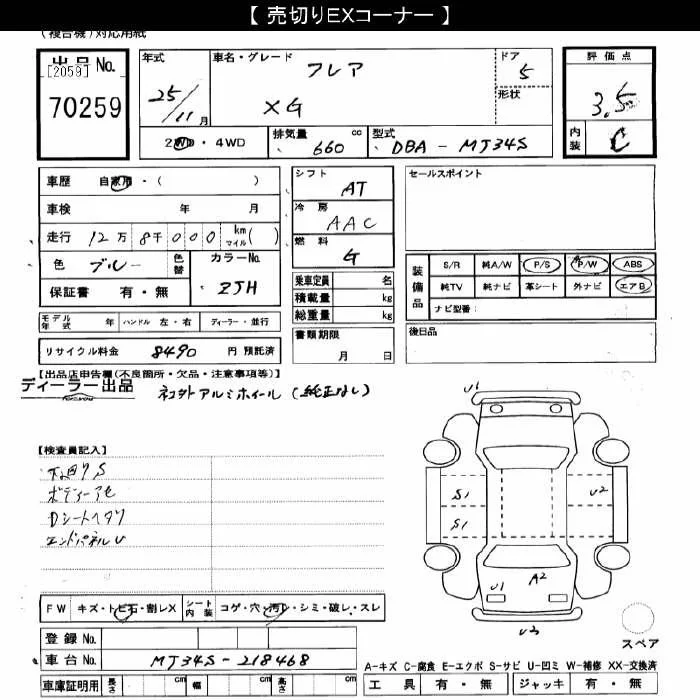 【 売切りEXコーナー 】
(複合機)対応用紙
出品 No.
[2059]
70259
年式
25/11月
車名・グレード
フレア
XG
ドア
5
形状
評価点
3.5
内装
C
2WD・4WD
排気量 660 cc
型式 DBA - MJ34S
車歴 自家用・( )
車検 年 月
走行 12万 8千 0 0 0 km マイル( )
色 ブルー 色替
カラーNo. ZJH
保証書 有・無
モデル年式 年 ハンドル 左・右 ディーラー・並行
リサイクル料金 8490 円 預託済
シフト AT
冷房 AAC
燃料 G
乗車定員 名
積載量 kg
総重量 kg
書類期限
月 日
セールスポイント
装備品
S/R 純A/W P/S P/W ABS
純TV 純ナビ 革シート 外ナビ エアB
ナビ型番:
後日品
【出品店申告欄(不良箇所・欠品・注意事項等)】
ディーラー出品
アルミホイール (純正なし)
【検査員記入】
下回りS
ボディーアセ
Dシートヘタリ
エンドパネルU
FW キズ・トビ石・割レX
シート内装 コゲ・穴・汚レ・シミ・破レ・スレ
登録 No.
車台 No. MJ34S-218468
車庫証明用 長さ cm 幅 cm 高さ cm
U1
S1
S1
U2
U1
A2
U3
スペア
A-キズ C-腐食 E-エクボ S-サビ U-凹ミ W-補修 XX-交換済
工具 有・無 ジャッキ 有・無